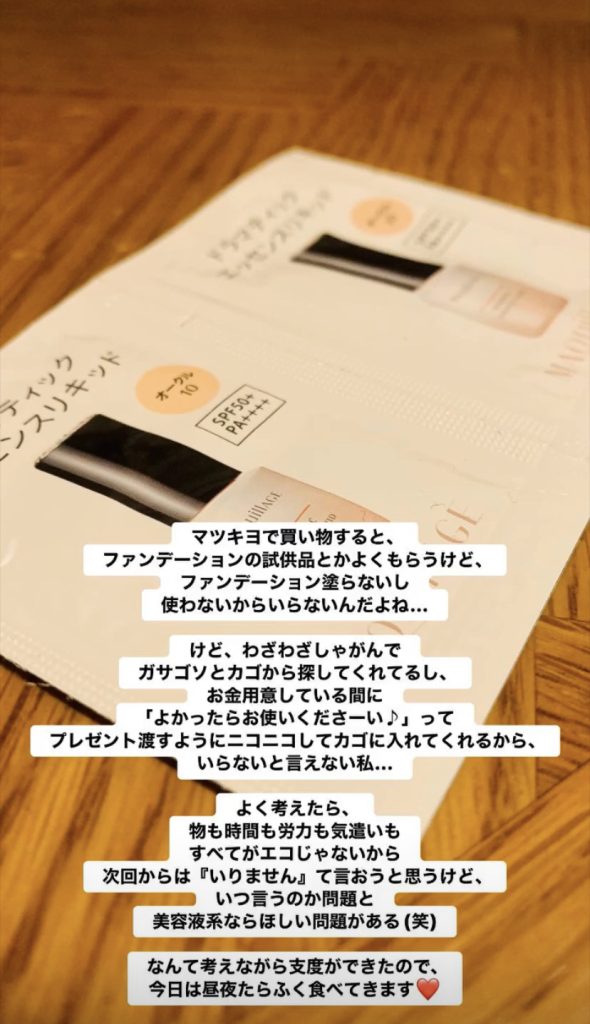 ドラマティック
エッセンスリキッド
ティック
ンスリキッド
オークル
10
SPF50+
PA++++
マツキヨで買い物すると、
ファンデーションの試供品とかよくもらうけど、
ファンデーション塗らないし
使わないからいらないんだよね…
けど、わざわざしゃがんで
ガサゴソとカゴから探してくれてるし、
お金用意している間に
「よかったらお使いくださーい♪」って
プレゼント渡すようにニコニコしてカゴに入れてくれるから、
いらないと言えない私…
よく考えたら、
物も時間も労力も気遣いも
すべてがエコじゃないから
次回からは『いりません』て言おうと思うけど、
いつ言うのか問題と
美容液系ならほしい問題がある(笑)
なんて考えながら支度ができたので、
今日は昼夜たらふく食べてきます❤️